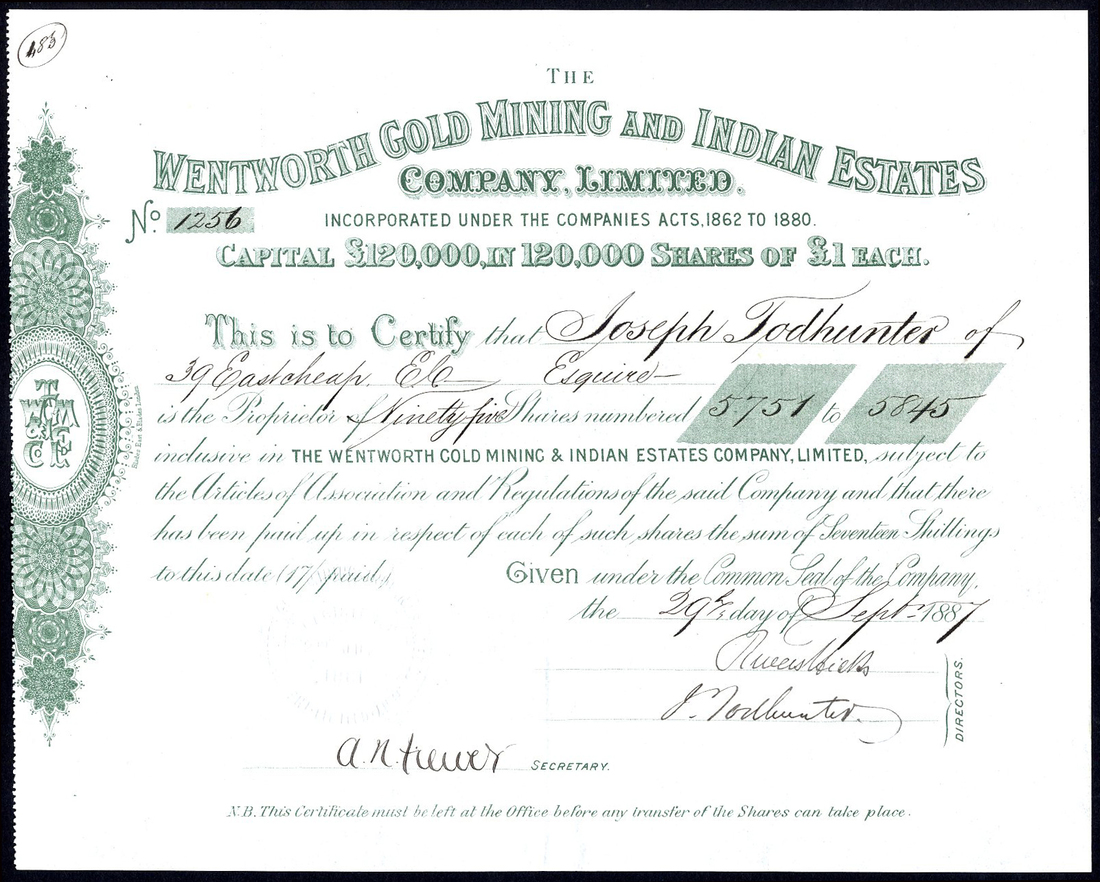 485
THE
WENTWORTH GOLD MINING AND INDIAN ESTATES
COMPANY, LIMITED.
No. 1256
INCORPORATED UNDER THE COMPANIES ACTS, 1862 TO 1880.
CAPITAL £120,000, IN 120,000 SHARES OF £1 EACH.
This is to Certify that Joseph Todhunter of
39 Eastcheap. E.C. Esquire
is the Proprietor of Ninety five Shares numbered 5751 to 5845
inclusive in THE WENTWORTH GOLD MINING & INDIAN ESTATES COMPANY, LIMITED, subject to
the Articles of Association and Regulations of the said Company and that there
has been paid up in respect of each of such shares the sum of Seventeen Shillings
to this date (17/ paid)
Given under the Common Seal of the Company,
the 29th day of Sept. 1887
J. Todhunter.
DIRECTORS.
SECRETARY.
N.B. This Certificate must be left at the Office before any transfer of the Shares can take place.